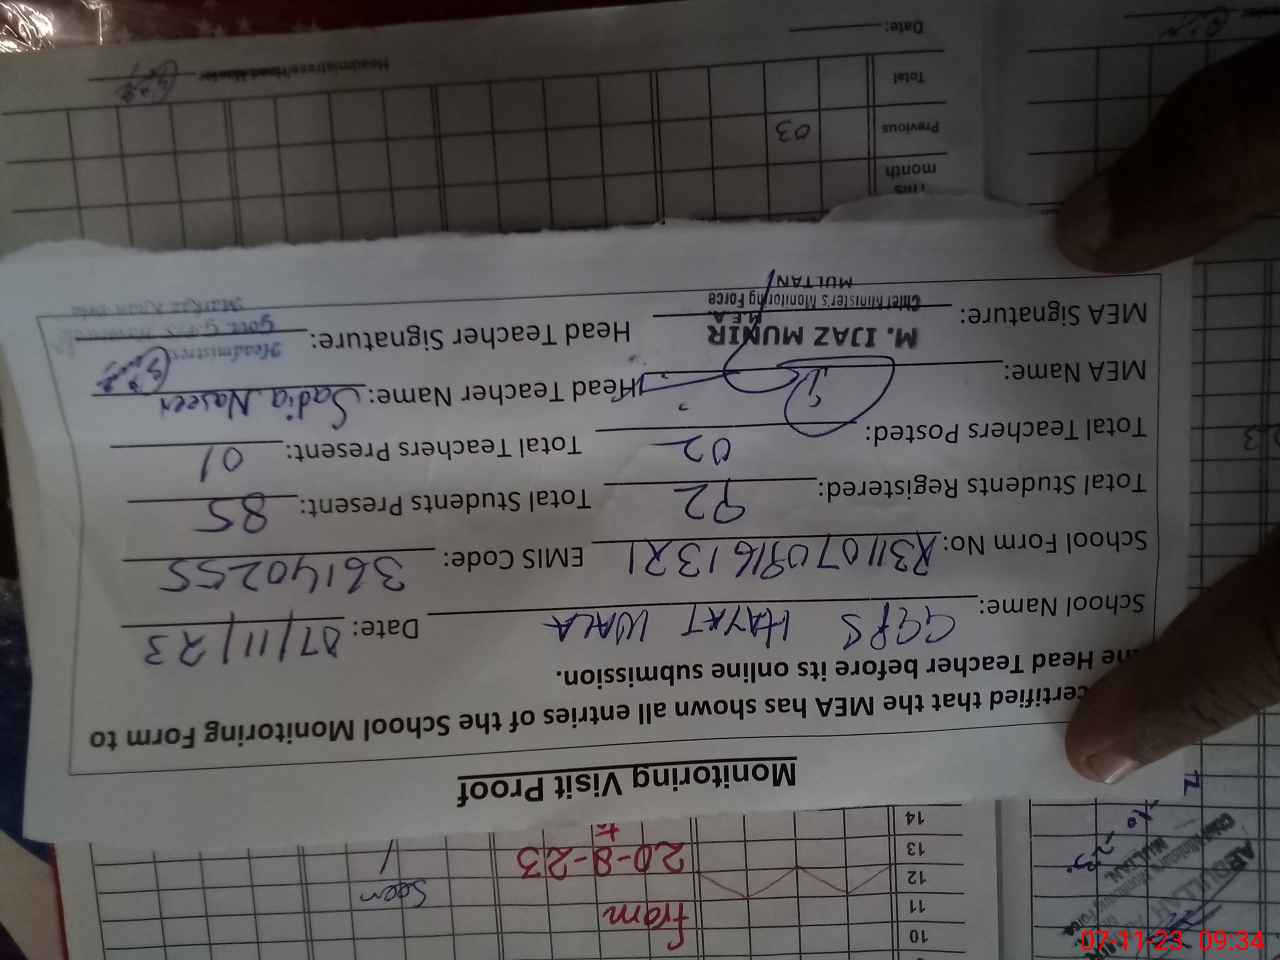 Monitoring Visit Proof
certified that the MEA has shown all entries of the School Monitoring Form to
the Head Teacher before its online submission.
School Name: GGPS HAYAT WALA Date: 07/11/23
School Form No: R3110709161321 EMIS Code: 36140255
Total Students Registered: 92 Total Students Present: 85
Total Teachers Posted: 02 Total Teachers Present: 01
MEA Name: Head Teacher Name: Sadia Naseer
M. IJAZ MUNIR
M.E.A.
MEA Signature: Head Teacher Signature:
Chief Minister's Monitoring Force
MULTAN
Headmistress
This
month
Previous 03
Total
Date: Headmistress/Head Master
10
11 from
12 Seen
13 20-8-23
14 to
ABDULLAH
MULTAN
07-11-23 09:34